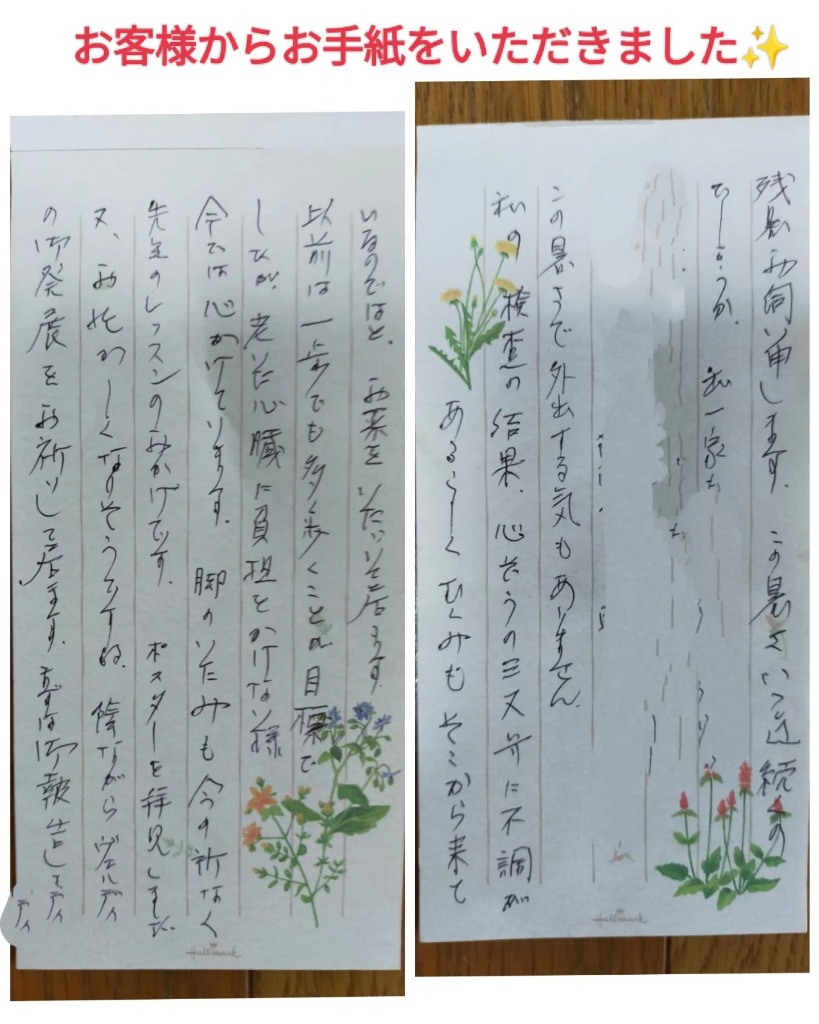 お客様からお手紙をいただきました✨
残暑お伺い申します。この暑さいつ迄続くの
でしょうか。
この暑さで外出する気もありません
私の検査の結果、心ぞうの三叉弁に不調が
あるらしく むくみもそこから来て
いるのではと、お薬をいただいて居ます。
以前は一歩でも多く歩くことが目標で
したが、老いた心臓に負担をかけない様
今では心がけております。 脚のいたみも今の所なく
先生のレッスンのみかげです。 ポスターを拝見しました
又、お忙がしくなりそうですね。 陰ながらヴェルディ
の御発展をお祈りして居ます。まずは御報告まで
Hallmark
Hallmark